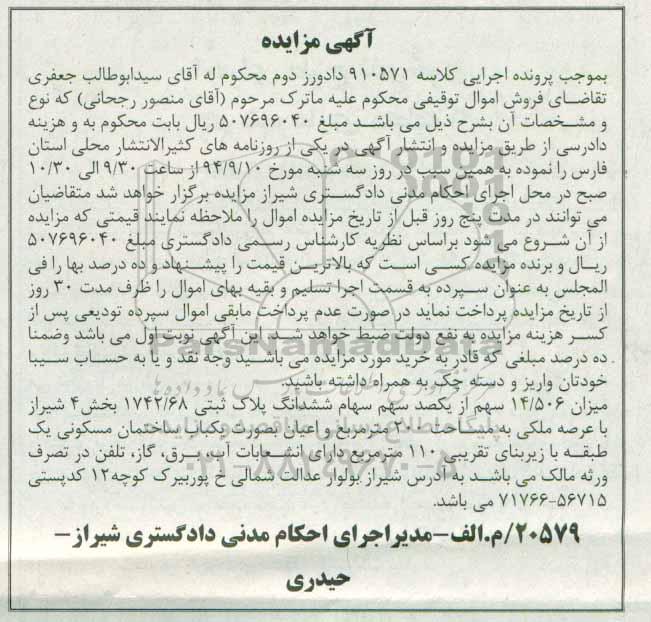 آگهی مزایده
بموجب پرونده اجرایی کلاسه ۹۱۰۵۷۱ دادورز دوم محکوم له آقای سیدابوطالب جعفری
تقاضای فروش اموال توقیفی محکوم علیه ماترک مرحوم (آقای منصور رجحانی) که نوع
و مشخصات آن بشرح ذیل می باشد مبلغ ۵۰۷۶۹۶۰۴۰ ریال بابت محکوم به و هزینه
دادرسی از طریق مزایده و انتشار آگهی در یکی از روزنامه های کثیرالانتشار محلی استان
فارس را نموده به همین سبب در روز سه شنبه مورخ ۹۴/۹/۱۰ از ساعت ۹/۳۰ الی ۱۰/۳۰
صبح در محل اجرای احکام مدنی دادگستری شیراز مزایده برگزار خواهد شد متقاضیان
می توانند در مدت پنج روز قبل از تاریخ مزایده اموال را ملاحظه نمایند قیمتی که مزایده
از آن شروع می شود براساس نظریه کارشناس رسمی دادگستری مبلغ ۵۰۷۶۹۶۰۴۰
ریال و برنده مزایده کسی است که بالاترین قیمت را پیشنهاد و ده درصد بها را فی
المجلس به عنوان سپرده به قسمت اجرا تسلیم و بقیه بهای اموال را ظرف مدت ۳۰ روز
از تاریخ مزایده پرداخت نماید در صورت عدم پرداخت مابقی اموال سپرده تودیعی پس از
کسر هزینه مزایده به نفع دولت ضبط خواهد شد. این آگهی نوبت اول می باشد وضمنا
ده درصد مبلغی که قادر به خرید مورد مزایده می باشید وجه نقد و یا به حساب سیبا
خودتان واریز و دسته چک به همراه داشته باشید.
میزان ۱۴/۵۰۶ سهم از یکصد سهم سهام ششدانگ پلاک ثبتی ۱۷۴۲/۶۸ بخش۴ شیراز
با عرصه ملکی به مساحت ۲۰۰ مترمربع و اعیان بصورت یکباب ساختمان مسکونی یک
طبقه با زیربنای تقریبی ۱۱۰ مترمربع دارای انشعابات آب، برق، گاز، تلفن در تصرف
ورثه مالک می باشد به آدرس شیراز بولوار عدالت شمالی خ پوربیرک کوچه۱۲ کدپستی
۷۱۷۶۶-۵۶۷۱۵ می باشد.
۲۰۵۷۹/م.الف-مدیراجرای احکام مدنی دادگستری شیراز-
حیدری
ParsNamadData
۰۲۱-۸۸۳۴۹۶۷۰-۵